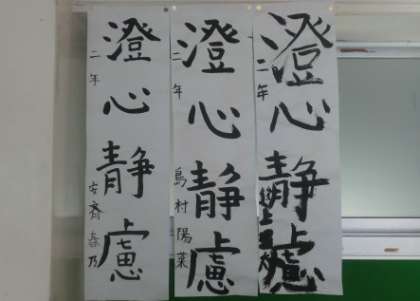 澄心静慮
二年
澄心静慮
二年 島村陽菜
澄心静慮
二年